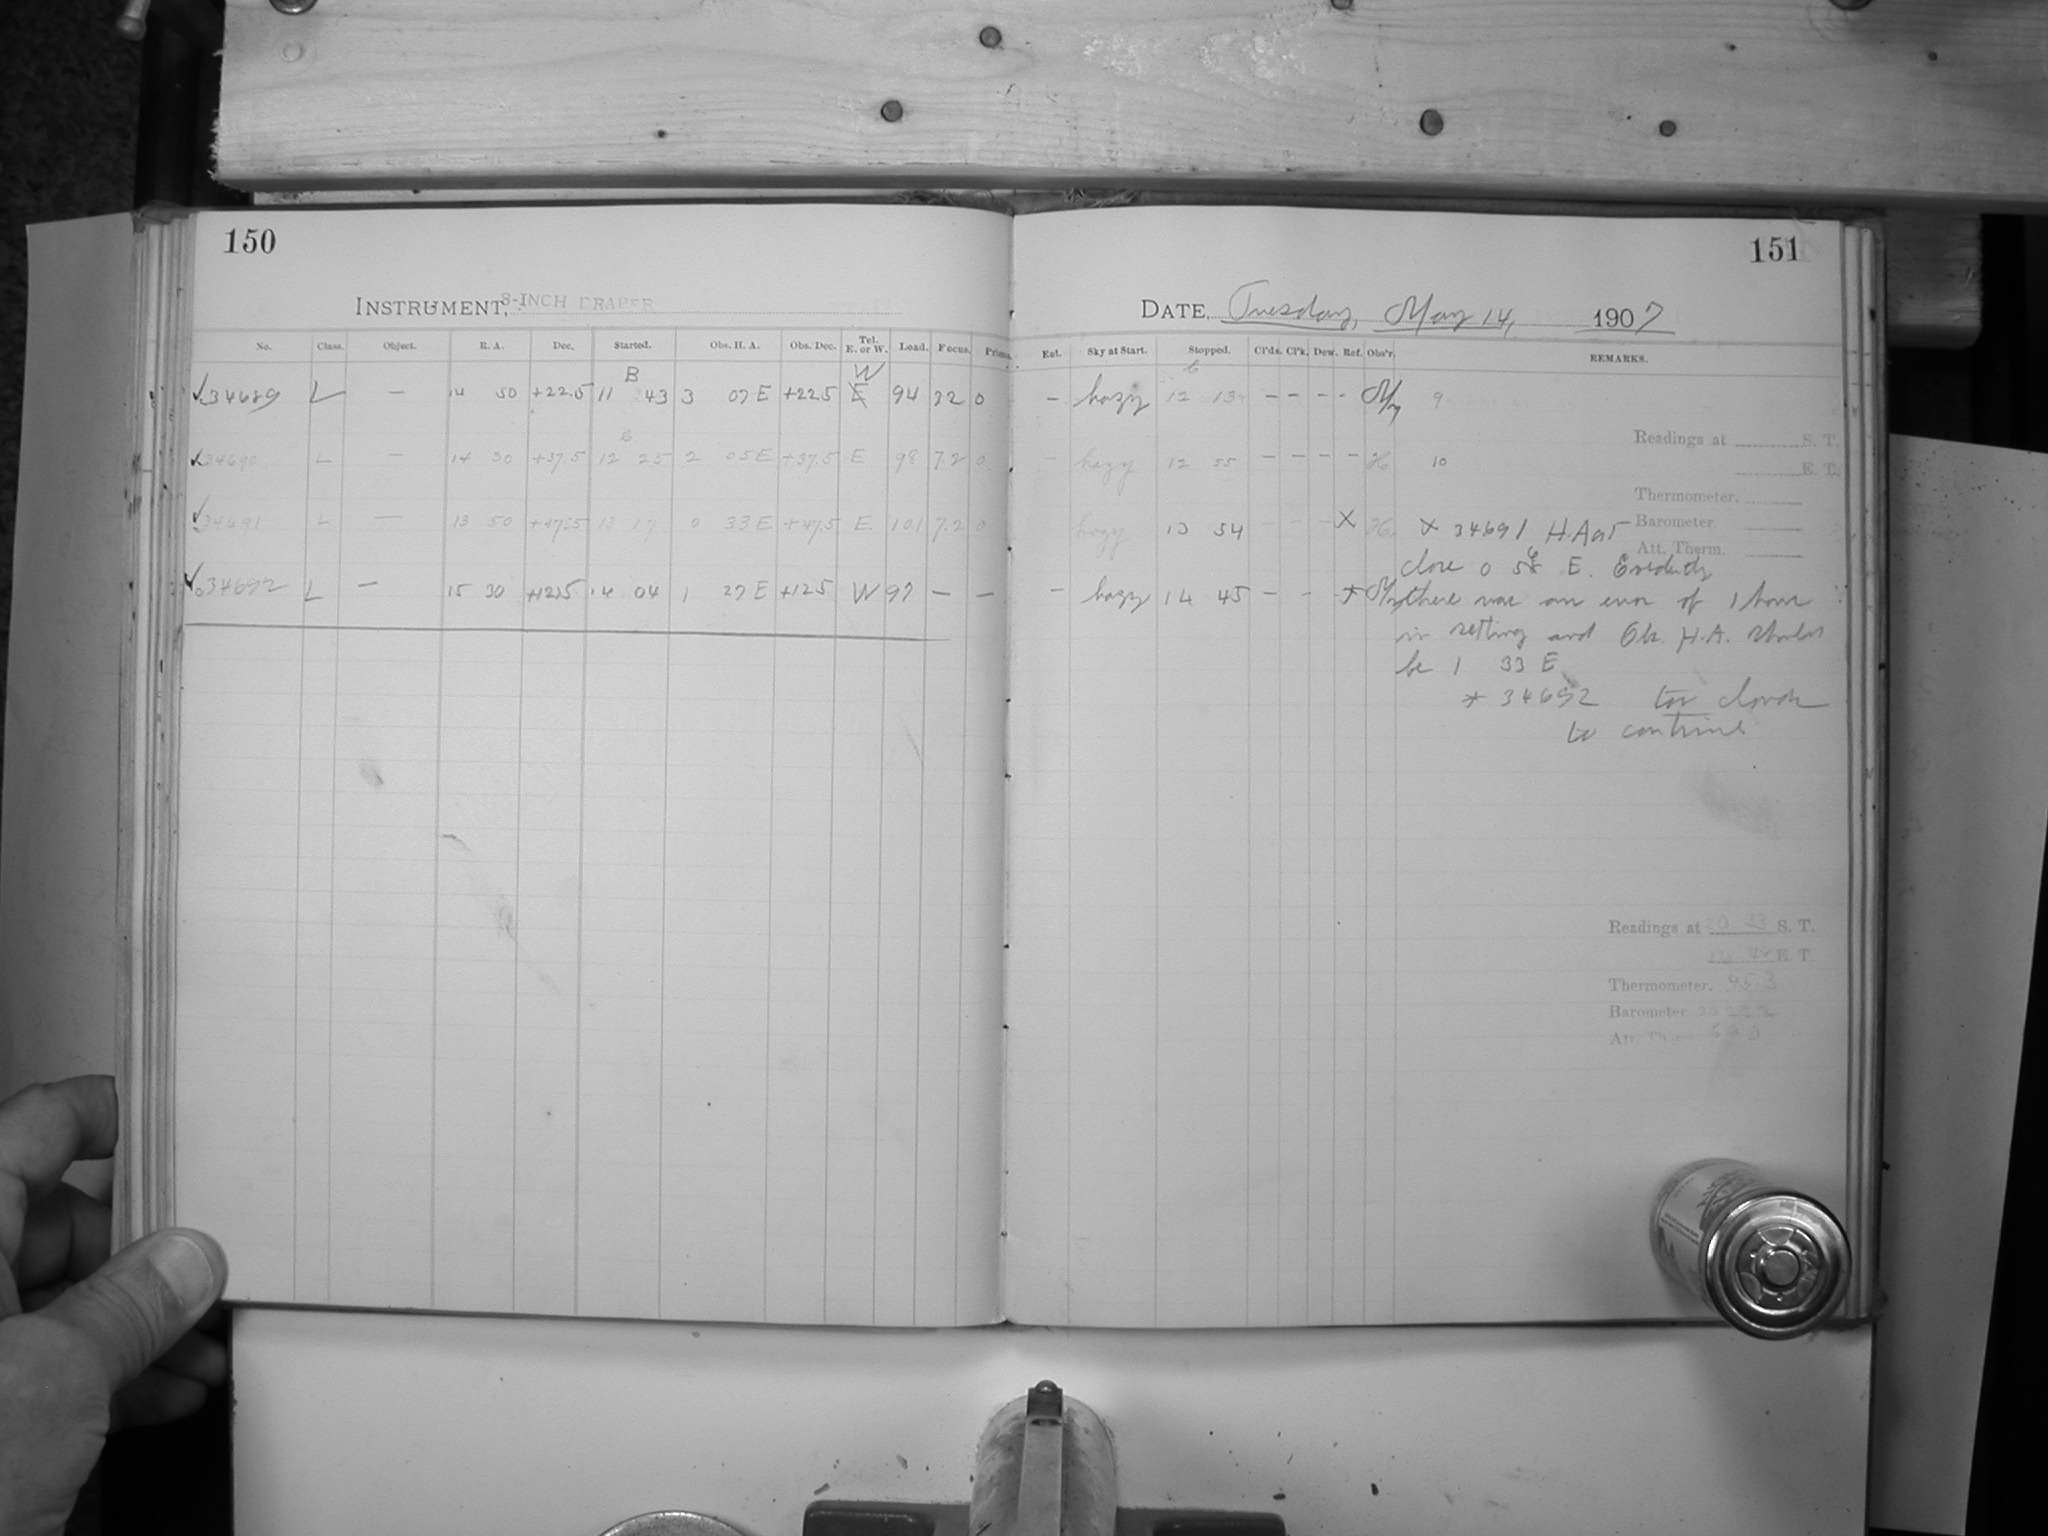 150
151
INSTRUMENT, 8-INCH DRAPER
DATE, Tuesday, May 14, 1907
No. Class. Object. R. A. Dec. Started. Obs. H. A. Obs. Dec. Tel. E. or W. Load. Focus. Prisms.
Ent. Sky at Start. Stopped. Cl'ds. Cl'k. Dew. Ref. Obs'r. REMARKS.
B W
✓34689 L — 14 50 +22.5 11 43 3 07 E +22.5 E 94 72 0 — hazy 12 13 - - - - My 9
Readings at S. T.
✓34690 L — 14 30 +37.5 12 25 2 05 E +37.5 E 98 7.2 0 — hazy 12 55 - - - - H 10
E. T.
Thermometer.
✓34691 L — 13 50 +47.5 13 17 0 33 E +47.5 E 101 7.2 0 hazy 13 54 - - - X H. X 34691 H.A at
Barometer.
Att. Therm.
close 0 58 E. Evidently
✓34692 L — 15 30 +12.5 14 04 1 27 E +12.5 W 97 — — — hazy 14 45 - - * My there was an error of 1 hour
in setting and Ob. H.A. should
be 1 33 E
* 34692 too cloudy
to continue
Readings at S. T.
E. T.
Thermometer. 45.3
Barometer
Att.